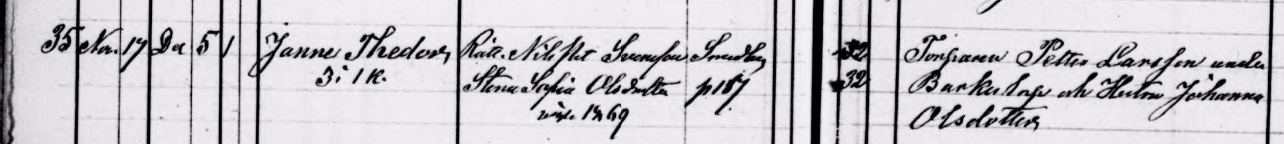 35 Nov. 17 Dec 5 1 Janne Thedor, Rätt. Nils Pet Svensson 32 Torparen Petter Larsson under
3 i 1 K. Stina Sofia Olsdotter p 187 32 och Hustru Johanna
1869 Olsdotter,